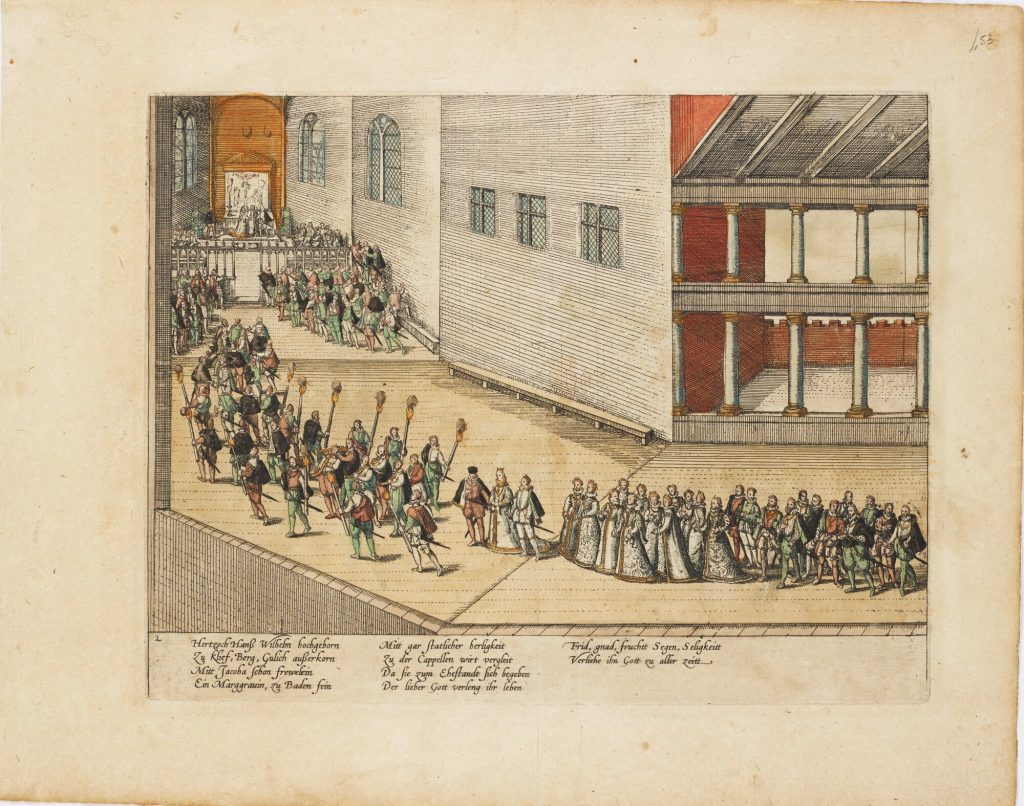 2
Hertzoch Hanß Wilhelm hochgeborn
Zu Klief, Berg, Gulich außerkorn
Mitt Jacoba schon frewelein
Ein Marggravin, zu Baden fein
Mitt gar statlicher herligkeit
Zu der Cappellen wirt vergleit
Da sie zum Ehestandt sich begeben
Der lieber Gott verleng ihr leben
Frid, gnad, fruchtt Segen, Seligkeitt
Verliehe ihn Gott zu aller zeitt